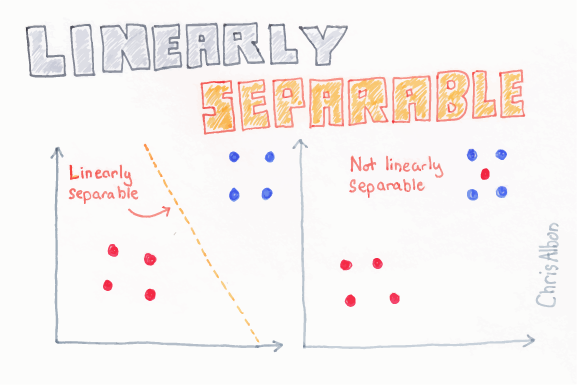 LINEARLY
SEPARABLE
Linearly
separable
Not linearly
separable
Chris Albon